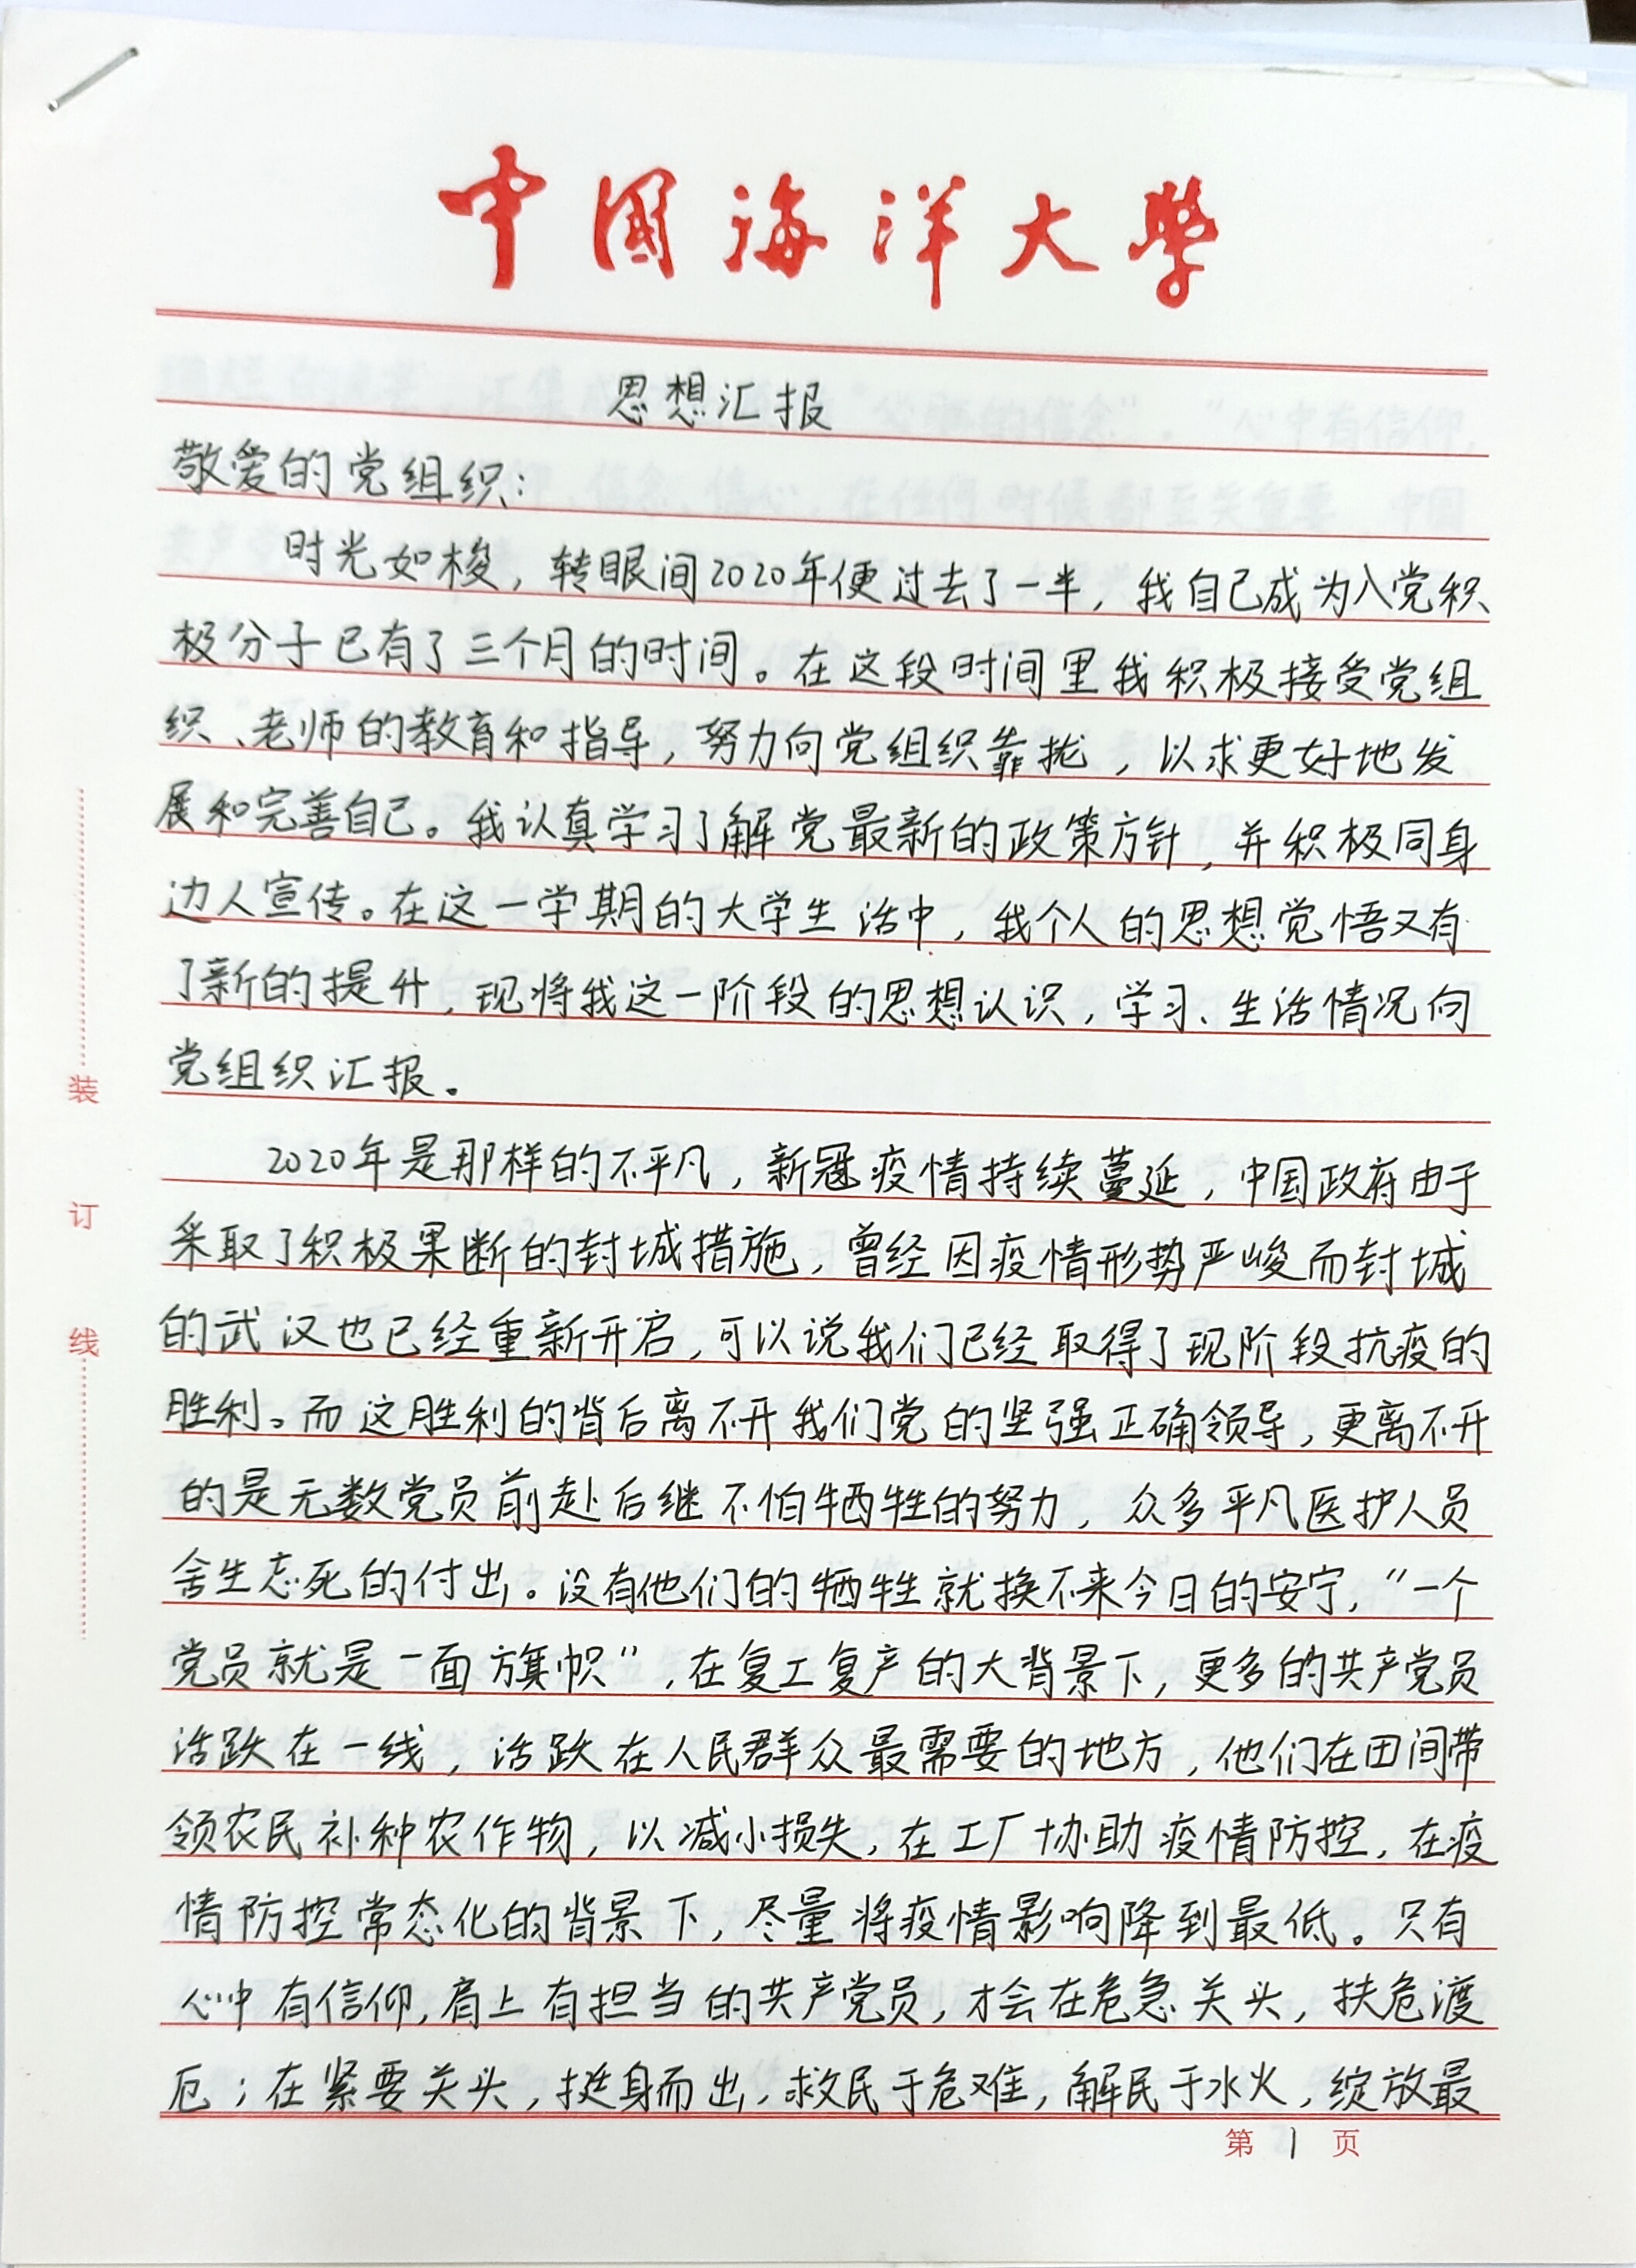 中国海洋大学
思想汇报
敬爱的党组织：
时光如梭，转眼间2020年便过去了一半，我自己成为入党积
极分子已有了三个月的时间。在这段时间里我积极接受党组
织、老师的教育和指导，努力向党组织靠拢，以求更好地发
展和完善自己。我认真学习了解党最新的政策方针，并积极同身
边人宣传。在这一学期的大学生活中，我个人的思想觉悟又有
了新的提升，现将我这一阶段的思想认识，学习、生活情况向
党组织汇报。
2020年是那样的不平凡，新冠疫情持续蔓延，中国政府由于
采取了积极果断的封城措施，曾经因疫情形势严峻而封城
的武汉也已经重新开启，可以说我们已经取得了现阶段抗疫的
胜利。而这胜利的背后离不开我们党的坚强正确领导，更离不开
的是无数党员前赴后继不怕牺牲的努力，众多平凡医护人员
舍生忘死的付出。没有他们的牺牲就换不来今日的安宁，“一个
党员就是一面旗帜”，在复工复产的大背景下，更多的共产党员
活跃在一线，活跃在人民群众最需要的地方，他们在田间带
领农民补种农作物，以减小损失，在工厂协助疫情防控，在疫
情防控常态化的背景下，尽量将疫情影响降到最低。只有
心中有信仰，肩上有担当的共产党员，才会在危急关头，扶危渡
厄；在紧要关头，挺身而出，救民于危难，解民于水火，绽放最
第1页
装
订
线